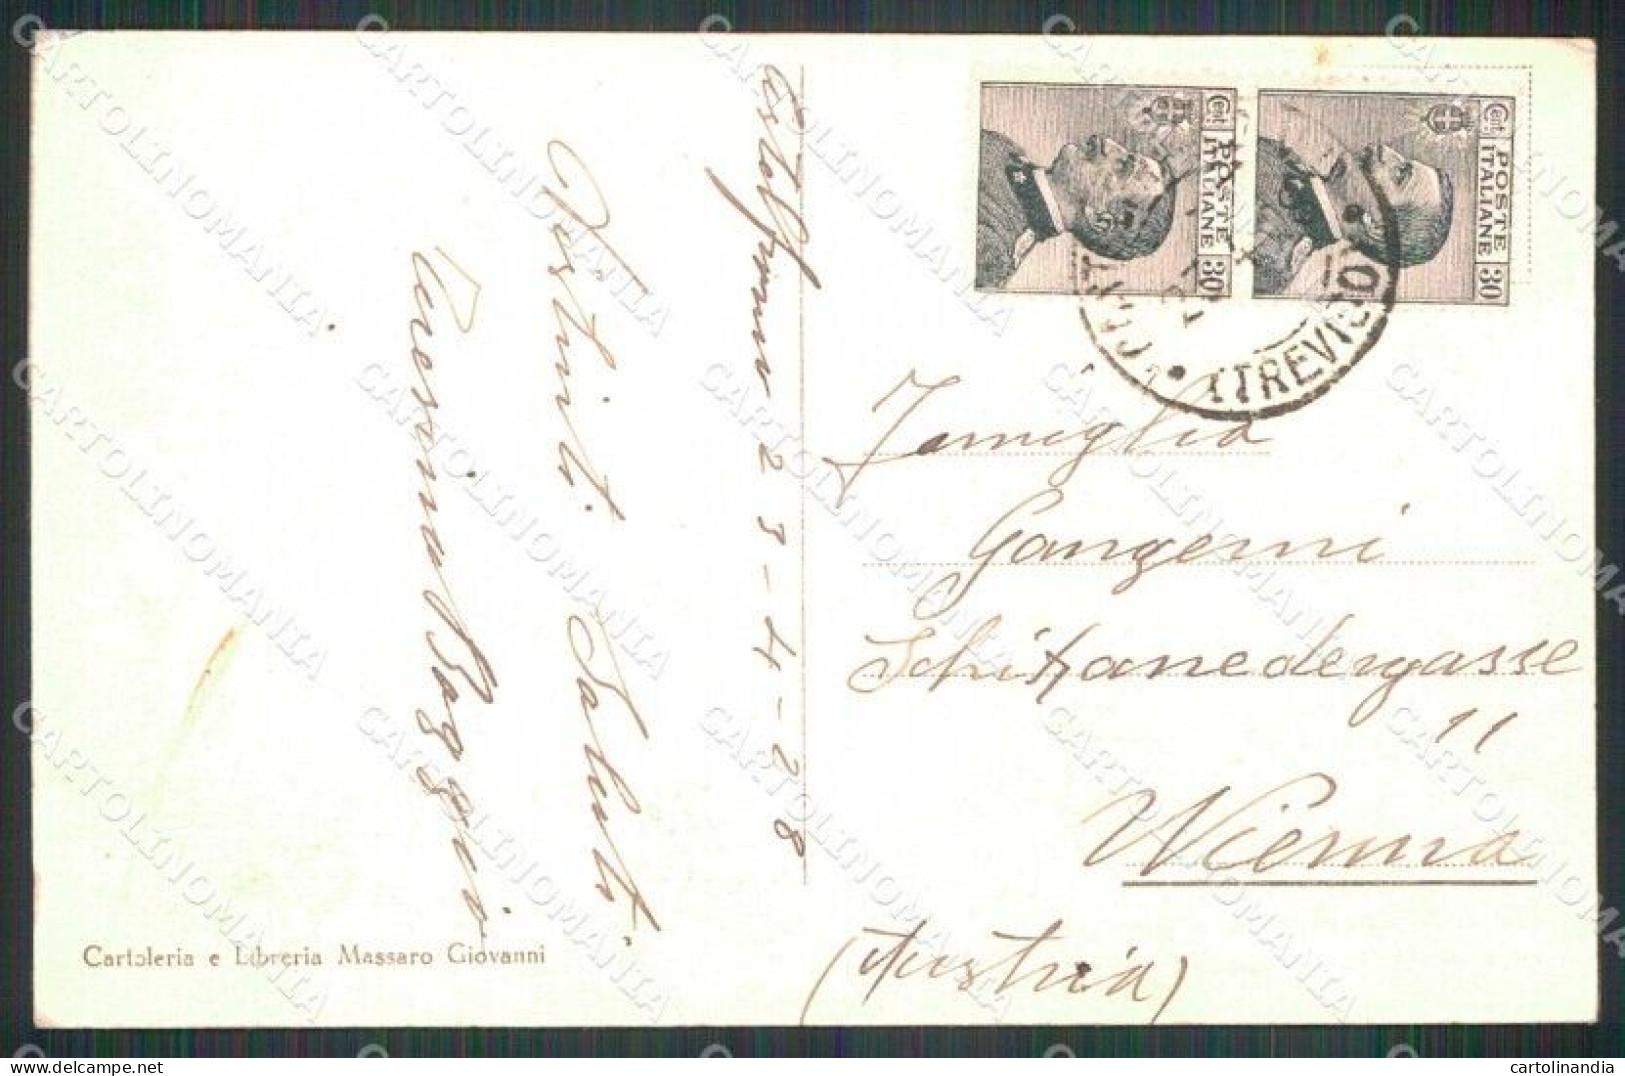 Castelfranco 23-4-28
Distinti Saluti
Baggio
Cartoleria e Libreria Massaro Giovanni
Cent. POSTE ITALIANE 30
Cent. POSTE ITALIANE 30
(TREVISO)
Famiglia
Gangemi
Schikanedergasse
11
Vienna
(Austria)
CARTOLINOMANIA
cartolinandia